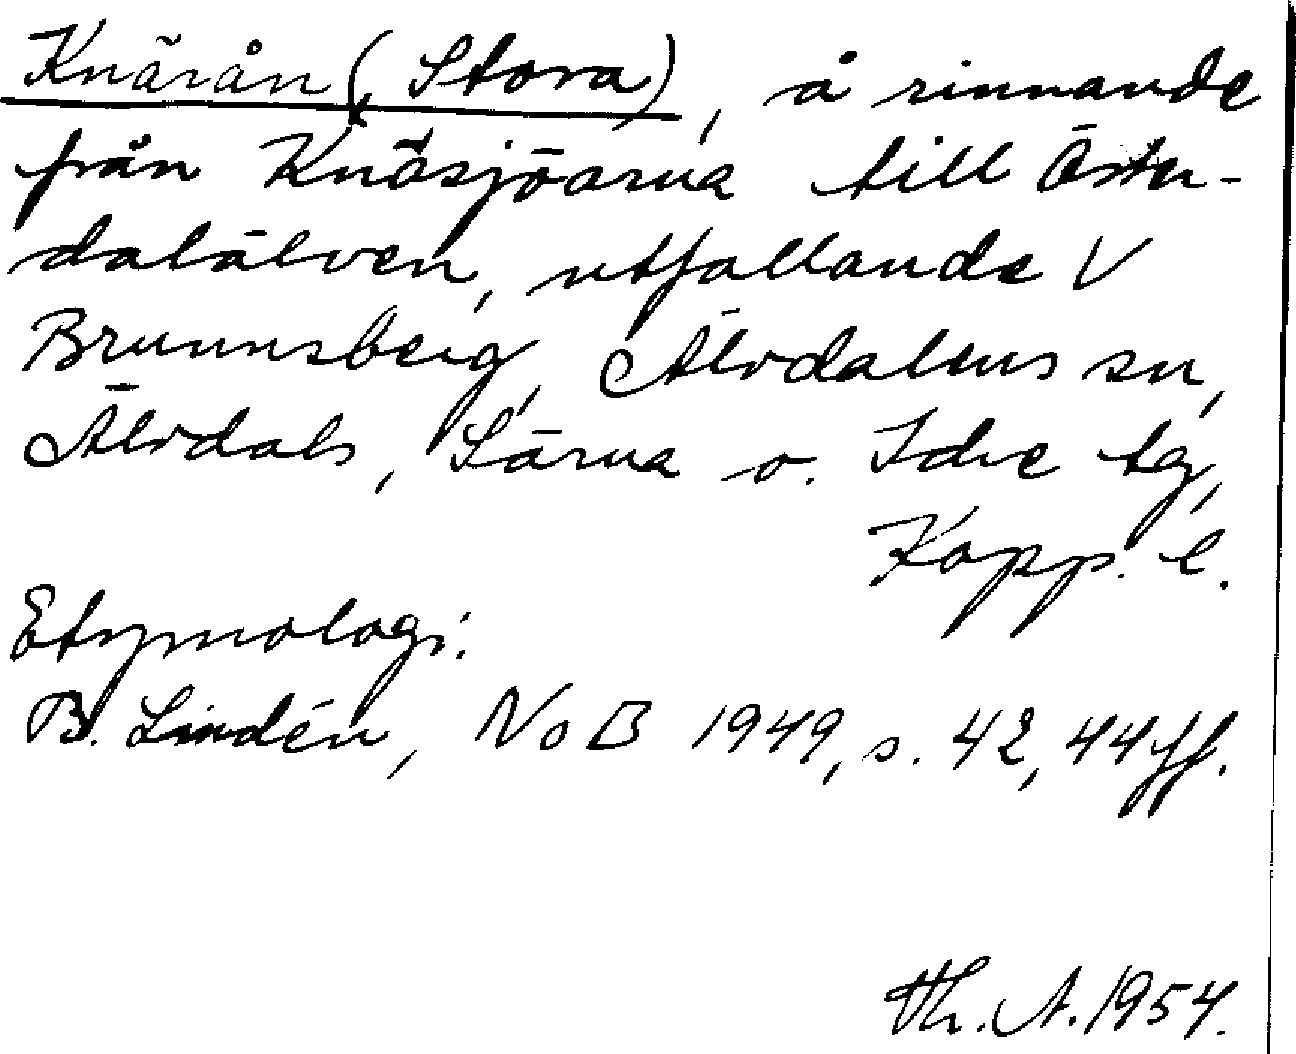 Knärån (, Stora), å rinnande
från Knäsjöarna till Öster-
dalälven, utfallande V
Brunnsberg, Älvdalens sn,
Älvdals, Särna o. Idre tg,
Kopp. l.
Etymologi:
B. Lindén, NoB 1949, s. 42, 44 ff.
Th. A. 1954.